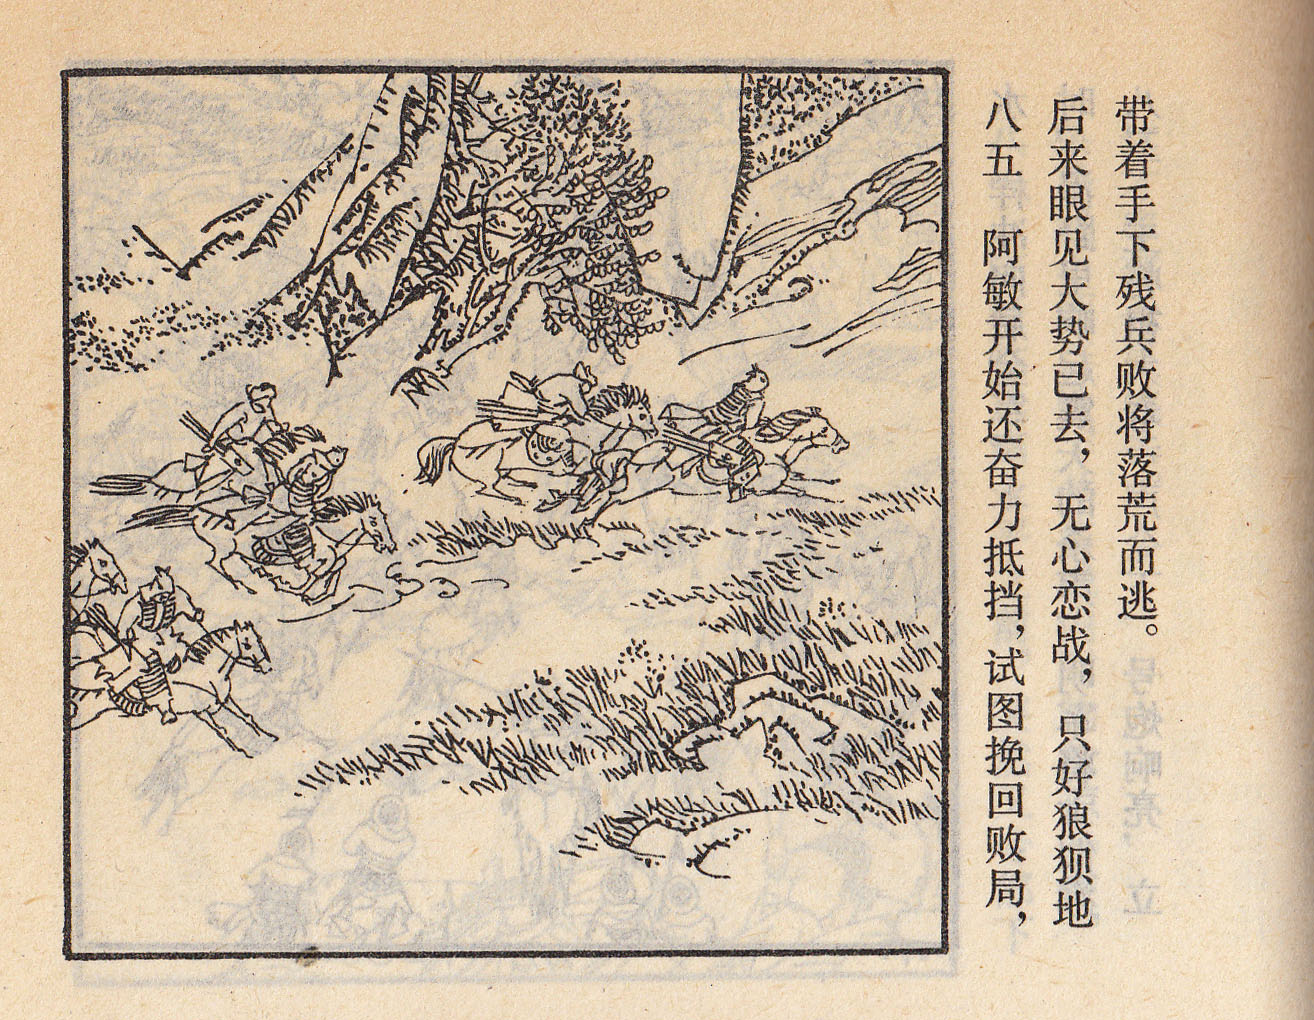 八五 阿敏开始还奋力抵挡，试图挽回败局，
后来眼见大势已去，无心恋战，只好狼狈地
带着手下残兵败将落荒而逃。